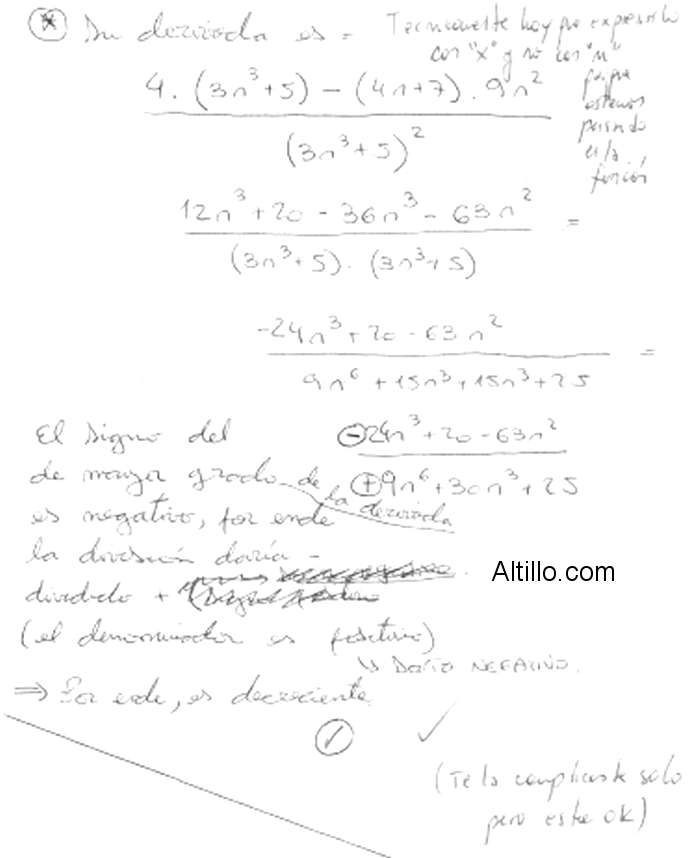 * Su derivada es = Tecnicamente hay que expresarlo
con "x" y no con "n"
porque
estamos
pensando
en la
función
4 . (3n³+5) - (4n+7) . 9n²
(3n³+5)²
12n³+20 - 36n³ - 63n² =
(3n³+5) . (3n³+5)
-24n³+20-63n² =
9n⁶ + 15n³+15n³+25
El signo del
-24n³+20-63n²
de mayor grado de la derivada
+9n⁶+30n³+25
es negativo, por ende
la división daría -
Altillo.com
dividido +
(el denominador es positivo)
↳ DARÍA NEGATIVO.
⇒ Por ende, es decreciente
✓ ✓
(Te la complicaste solo
pero esta OK)